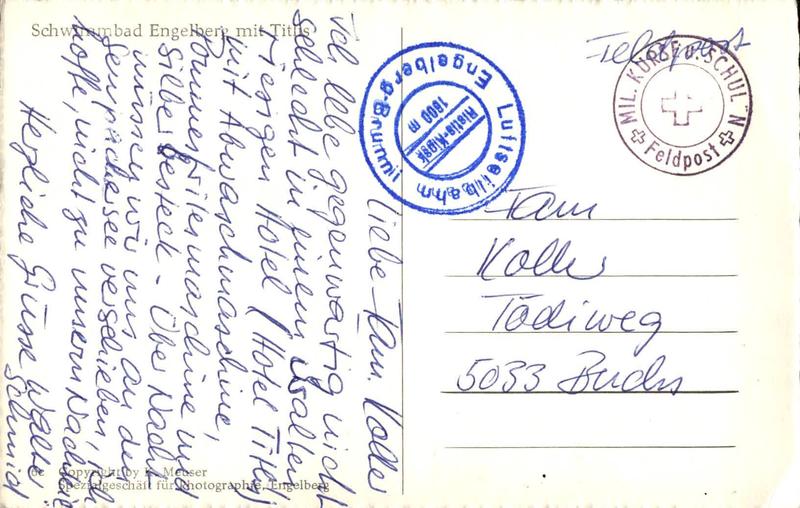 Schwimmbad Engelberg mit Titlis
Feldpost
MIL. KURSE U. SCHUL N
Feldpost
Luftseilbahn
Engelberg-Brunni
1600 m
Liebe Fam. Koller
Ich lebe gegenwärtig nicht
schlecht in einem
riesigen Hotel (Hotel Titlis)
mit Abwaschmaschine,
und
Silberbesteck - Über Nacht
müssen wir uns an den
verschieben, Ich
hoffe, nicht zu unserm
Herzliche Grüsse Walter
Schmid
Fam
Koller
Tödiweg
5033 Buchs
Copyright by K. Meuser
Spezialgeschäft für Photographie, Engelberg